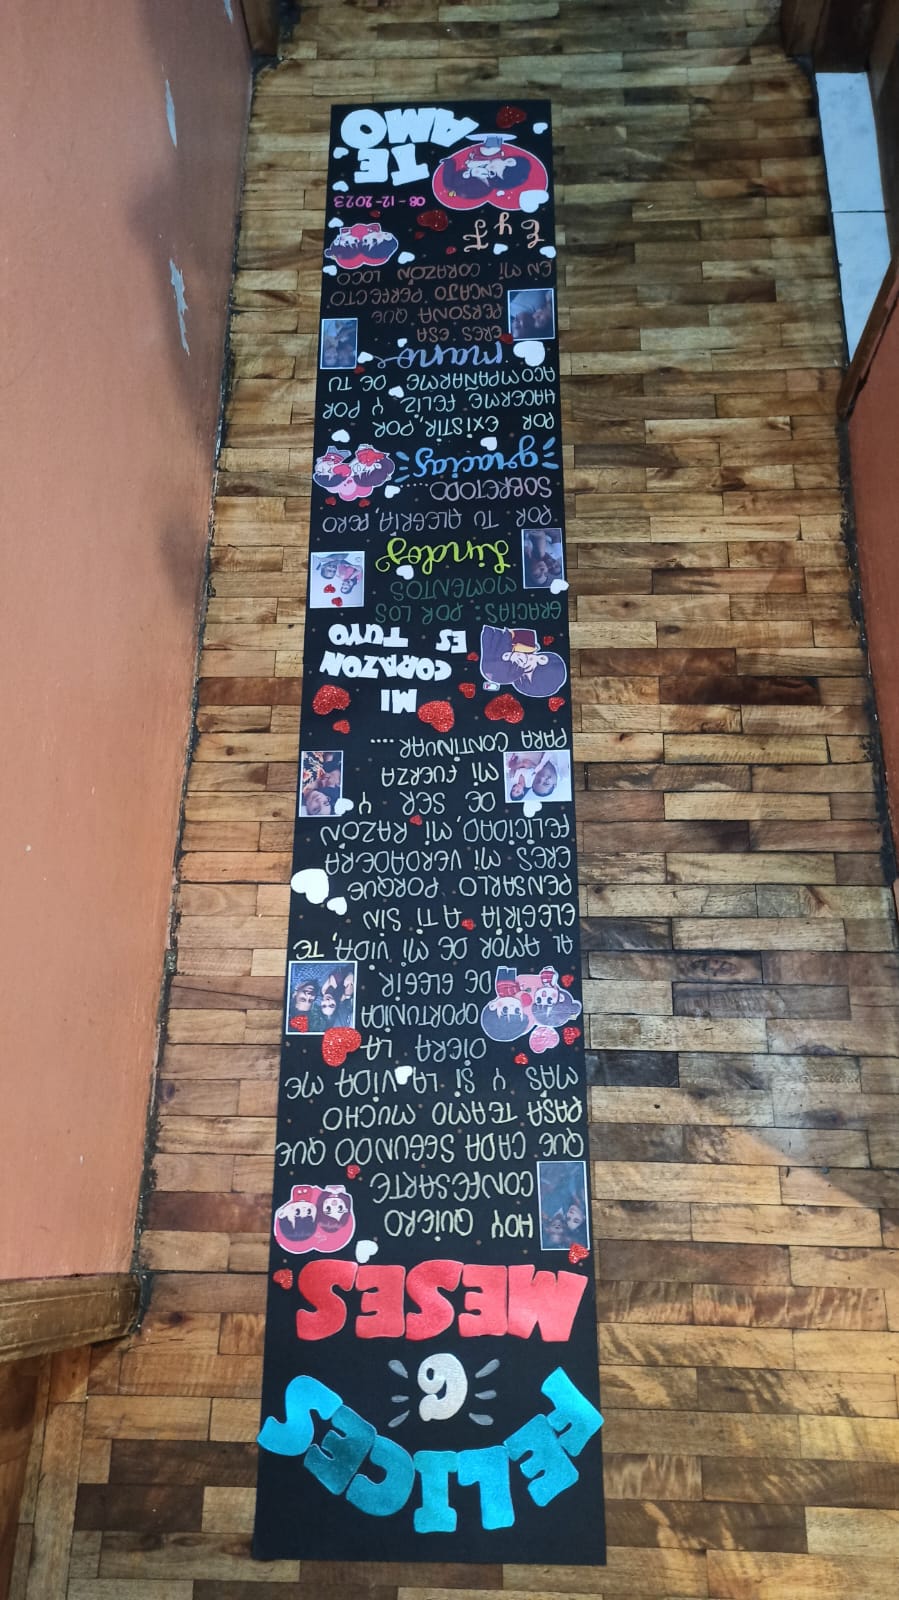 FELICES
6
MESES
HOY QUIERO
CONFESARTE
QUE CADA SEGUNDO QUE
PASA TEAMO MUCHO
MAS Y SI LA VIDA ME
DIERA LA
OPORTUNIDA
DE ELEGIR
AL AMOR DE MI VIDA, TE
ELEGIRIA A TI SIN
PENSARLO PORQUE
ERES MI VERDADERA
FELICIDAD, MI RAZÓN
DE SER Y
MI FUERZA
PARA CONTINUAR ....
MI
CORAZON
ES TUYO
GRACIAS POR LOS
MOMENTOS
Lindos
POR TU ALEGRIA, PERO
SOBRETODO.....
gracias
POR EXISTIR, POR
HACERME FELIZ Y POR
ACOMPAÑARME DE TU
mano
ERES ESA
PERSONA QUE
ENCAJO PERFECTO
EN MI CORAZÓN LOCO
E y F
08-12-2023
TE
AMO